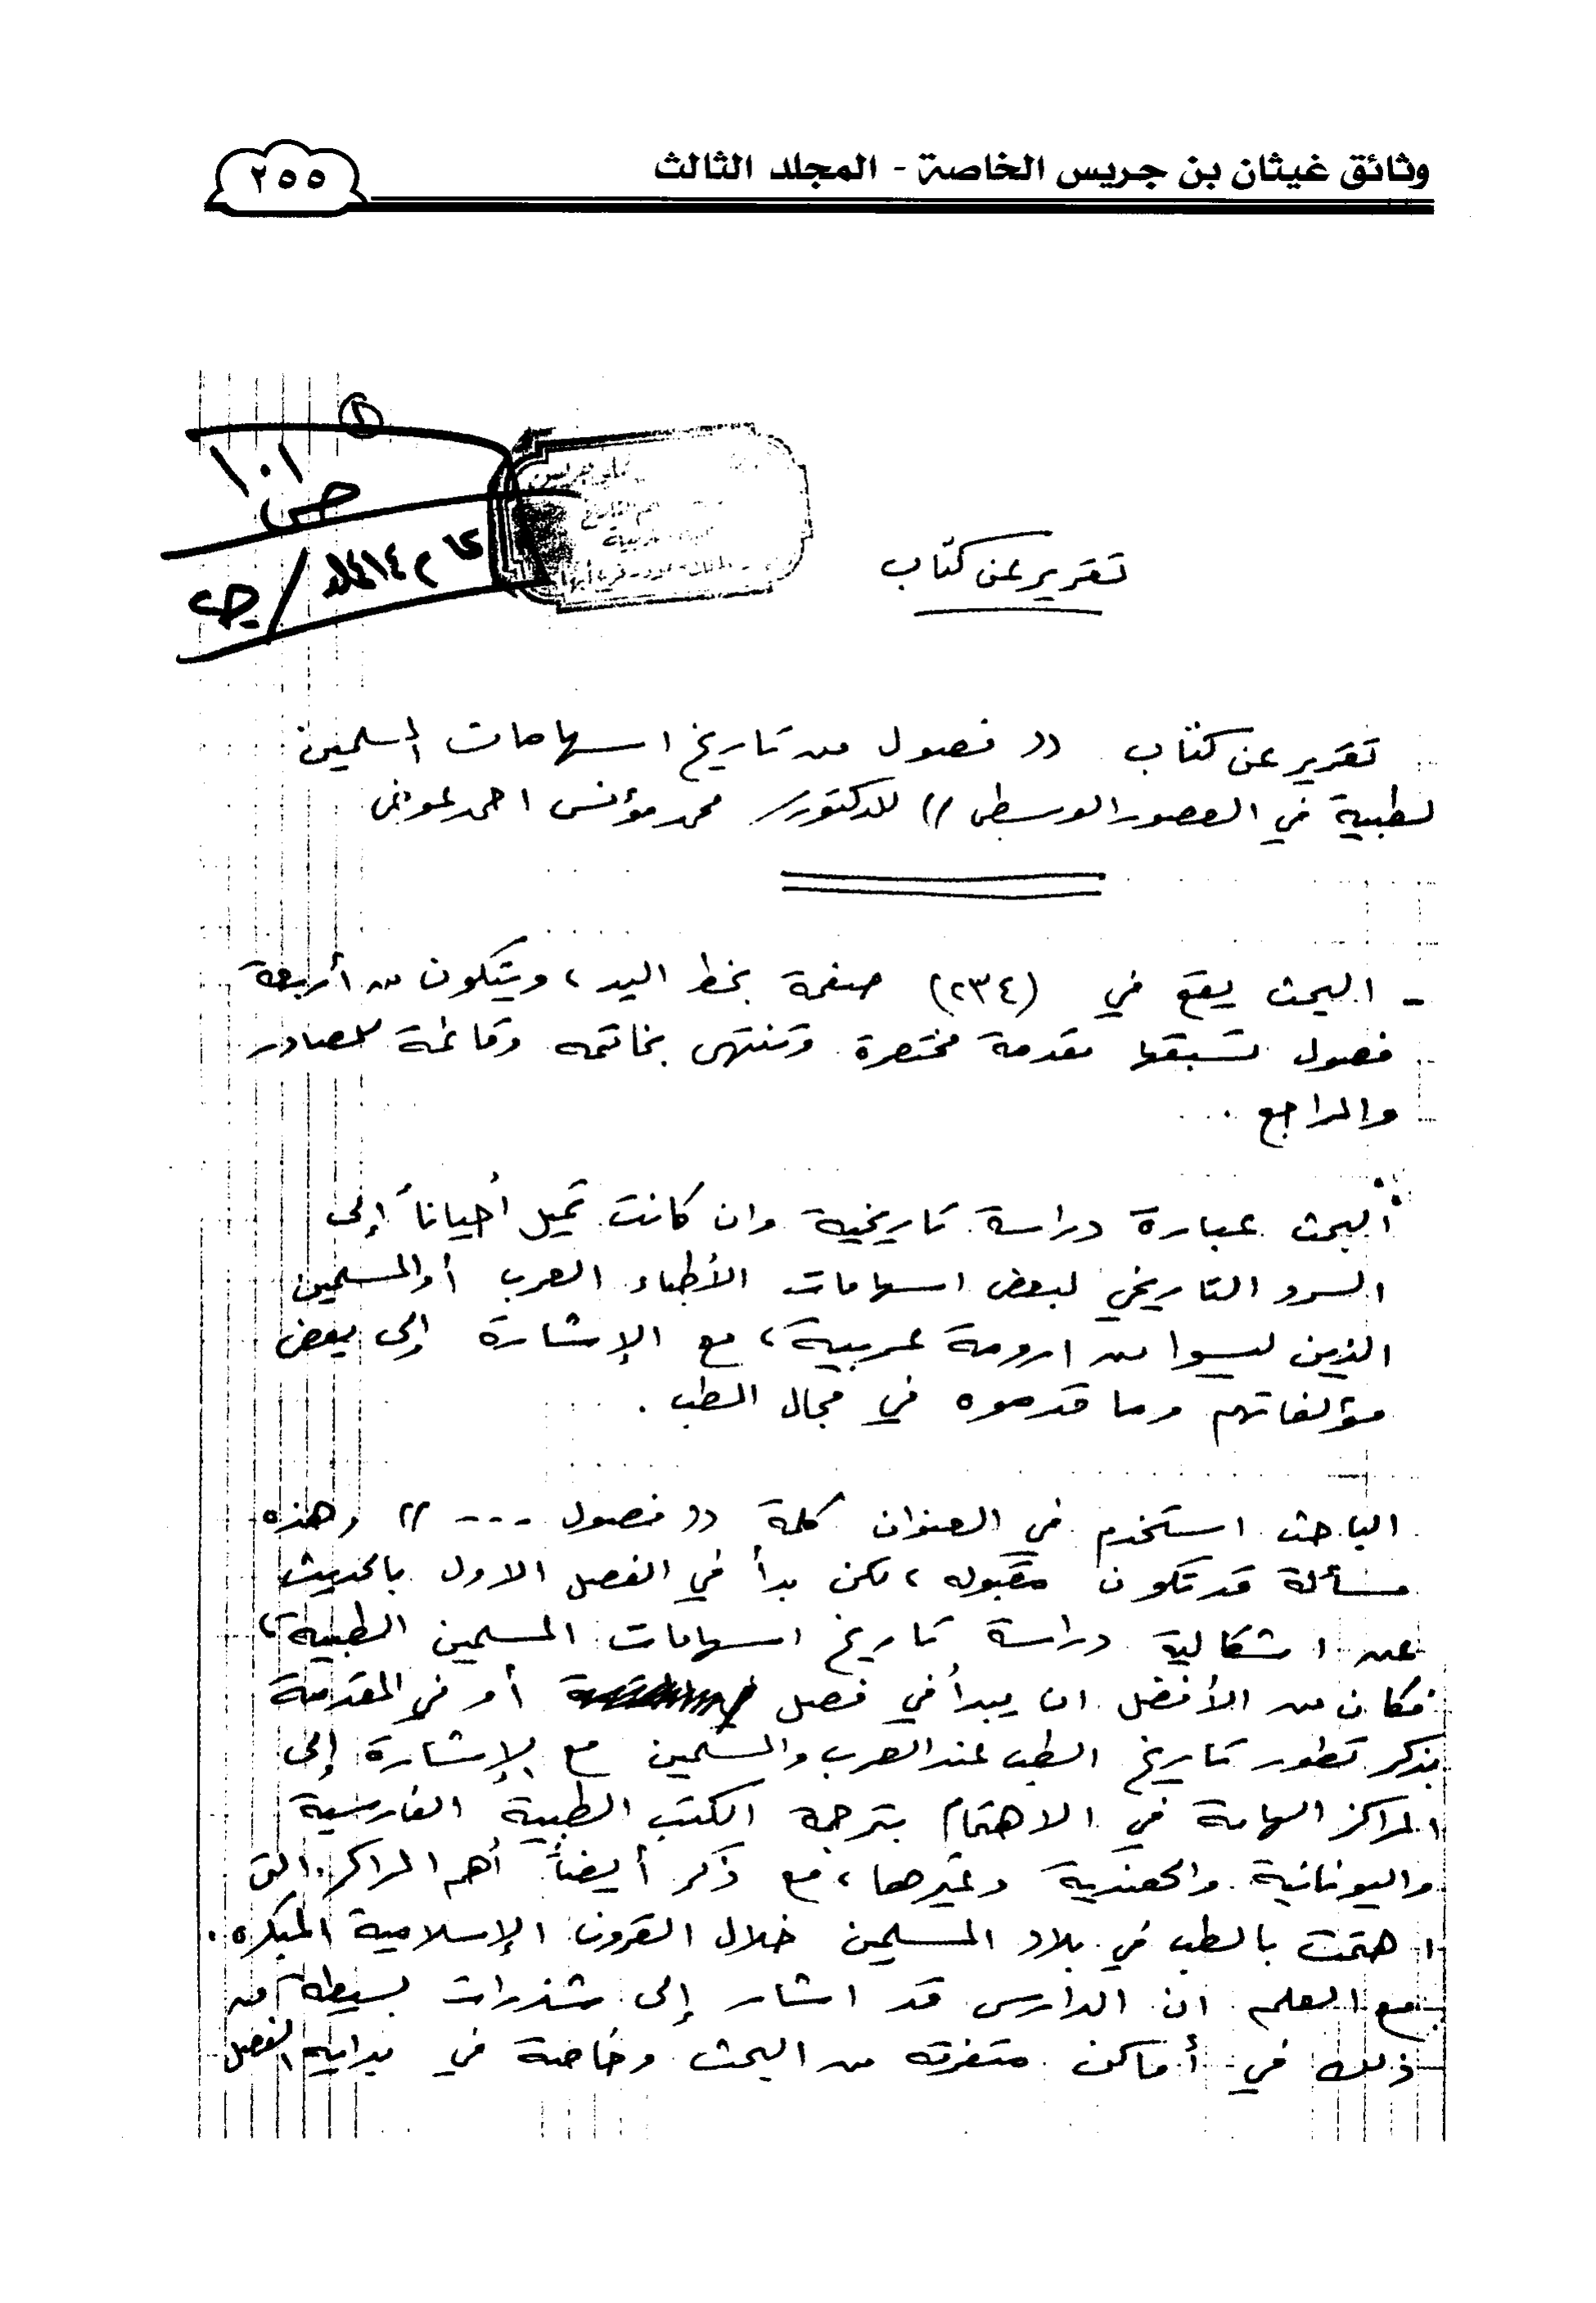 وثائق غيثان بن جريس الخاصة - المجلد الثالث
٢٥٥
تقرير عن كتاب
تقرير عن كتاب (( فصول من تاريخ اسهامات المسلمين
لطبية في العصور الوسطى )) للدكتور/ محمد مؤنس احمد عوض
- البحث يقع في (٢٣٤) صفحة بخط اليد، ويتكون من أربعة
فصول تسبقها مقدمة مختصرة وتنتهى بخاتمه وقائمة للمصادر
والمراجع .
البحث عبارة دراسة تاريخية وان كانت تميل أحياناً إلى
السرد التاريخي لبعض اسهامات الأطباء العرب أو المسلمين
الذين ليسوا من ارومة عربية، مع الإشارة إلى بعض
مؤلفاتهم وما قدموه في مجال الطب .
الباحث استخدم في العنوان كلمة (( فصول --- )) وهذه
مسألة قد تكون مقبوله، لكن بدأ في الفصل الاول بالحديث
عن اشكالية دراسة تاريخ اسهامات المسلمين الطبية،
فكان من الأفضل ان يبدأ في فصل أو في المقدمة
بذكر تطور تاريخ الطب عند العرب والمسلمين مع الإشارة إلى
المراكز الهامة في الاهتمام بترجمة الكتب الطبية الفارسية
واليونانية والهندية وغيرها، مع ذكر أيضاً أهم المراكز التي
اهتمت بالطب في بلاد المسلمين خلال القرون الإسلامية المبكره.
مع العلم ان الدارس قد اشار إلى شذرات بسيطه من
ذلك في أماكن متفرقه من البحث وخاصة في بدايه الفصل